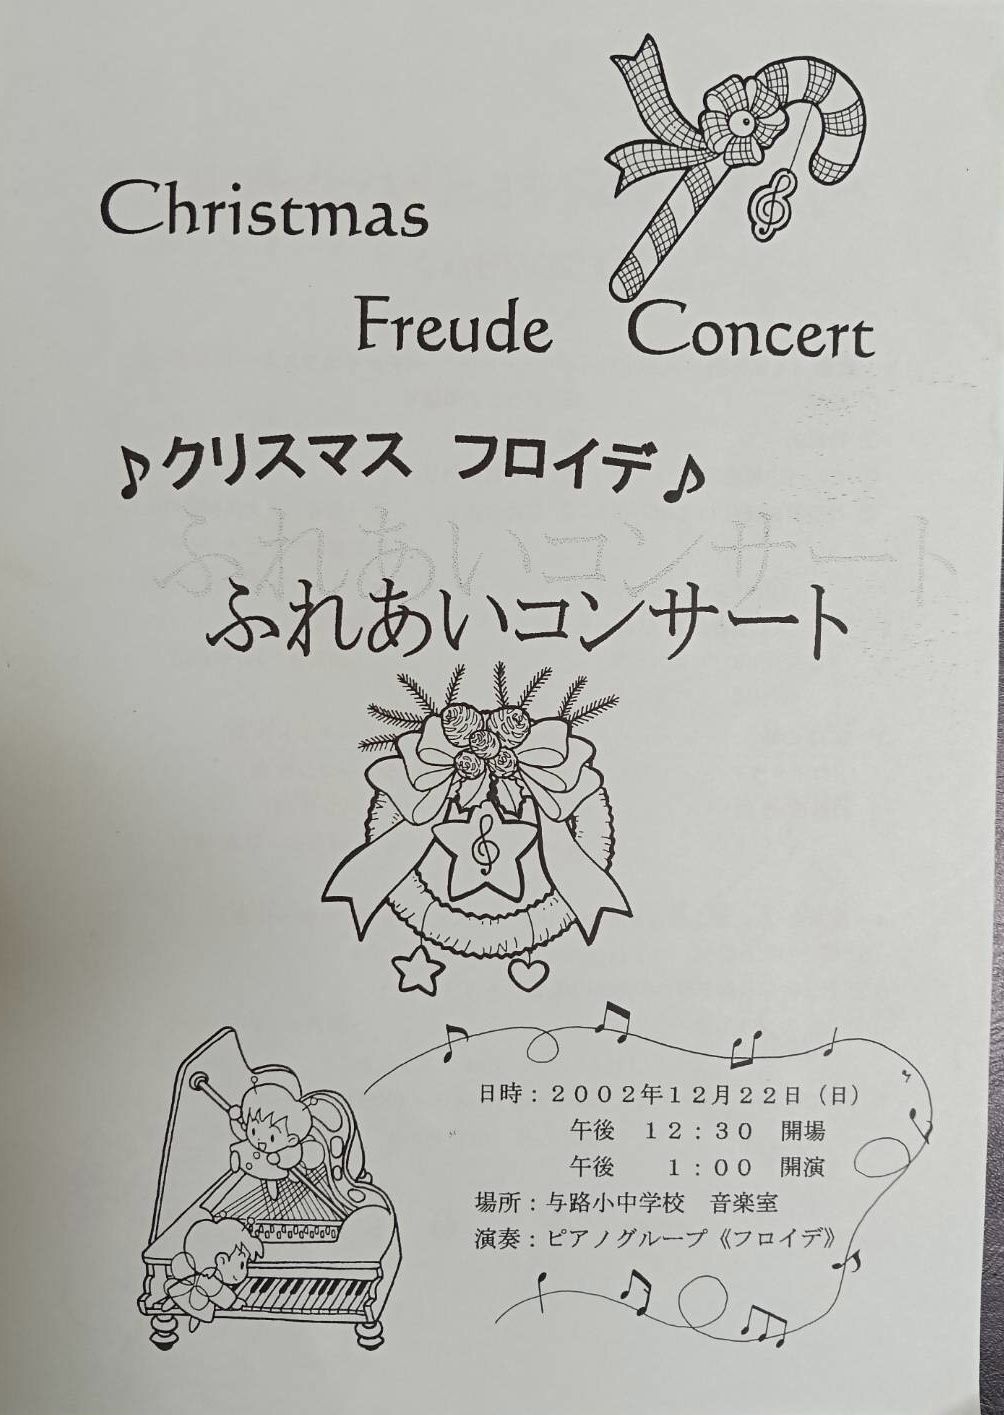 Christmas
Freude Concert
♪クリスマス フロイデ♪
ふれあいコンサート
日時：２００２年１２月２２日（日）
午後 １２：３０ 開場
午後 １：００ 開演
場所：与路小中学校 音楽室
演奏：ピアノグループ《フロイデ》